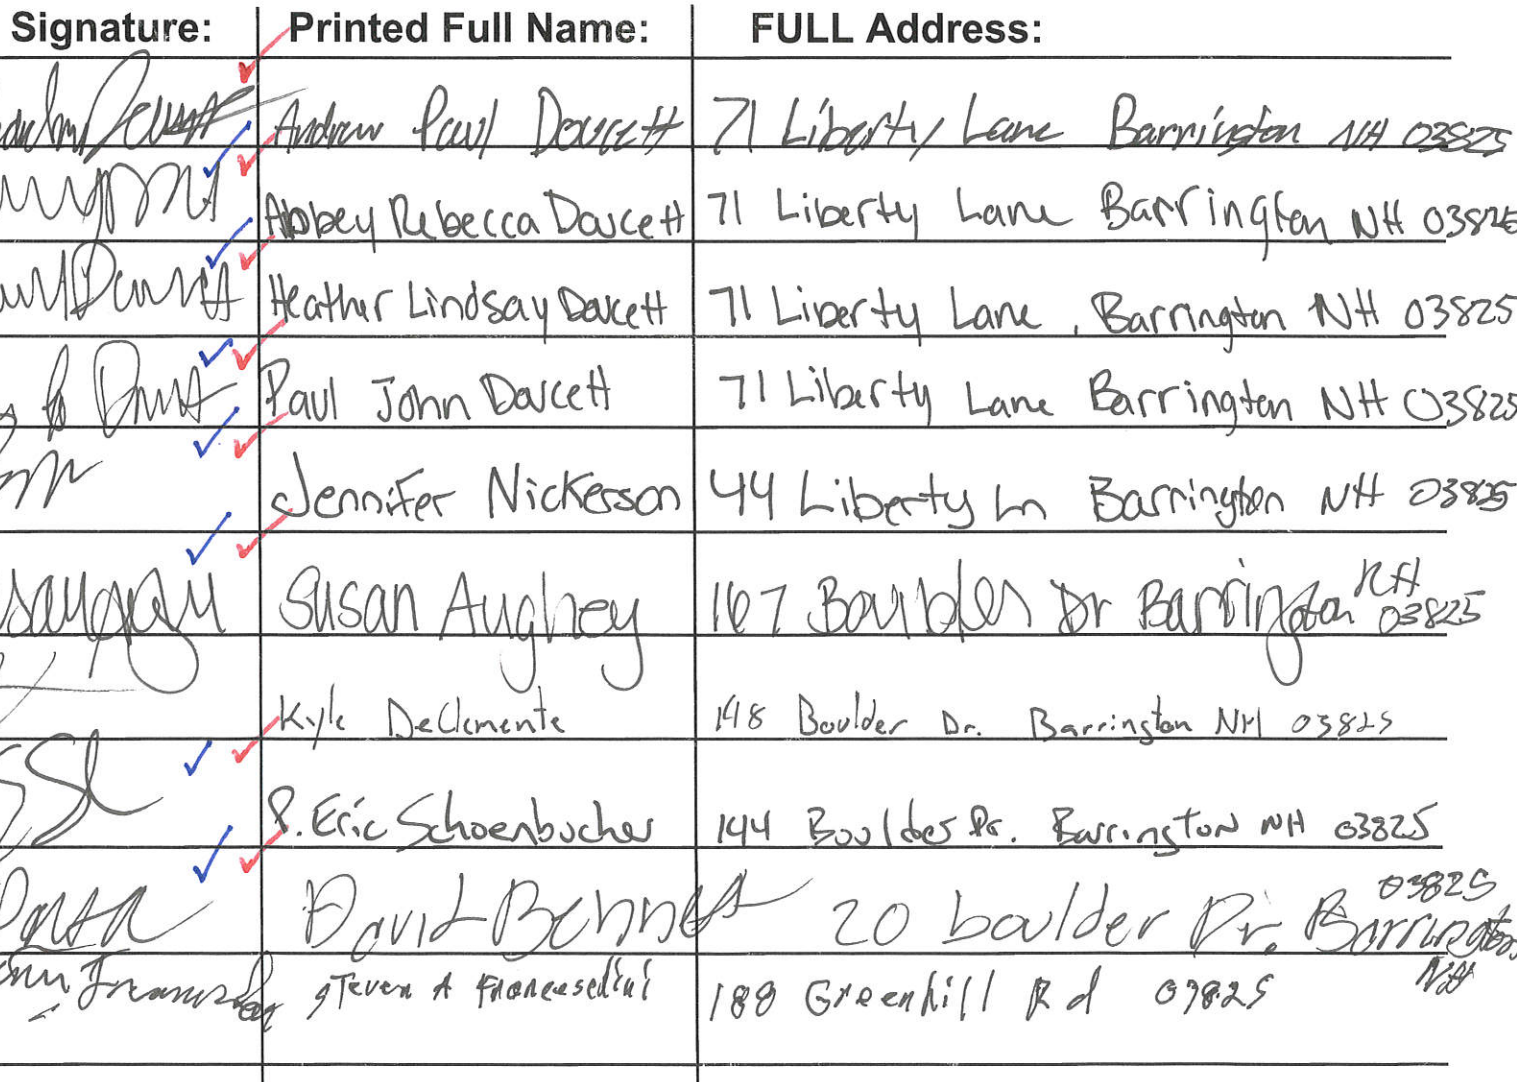 Signature: Printed Full Name: FULL Address:
Andrew Paul Doucett 71 Liberty Lane Barrington NH 03825
Abbey Rebecca Doucett 71 Liberty Lane Barrington NH 03825
Heather Lindsay Doucett 71 Liberty Lane, Barrington NH 03825
Paul John Doucett 71 Liberty Lane Barrington NH 03825
Jennifer Nickerson 44 Liberty Ln Barrington NH 03825
Susan Aughey 167 Dr Barrington NH 03825
Kyle DeClemente 148 Boulder Dr. Barrington NH 03825
P. Eric Schoenbucher 144 Boulder Dr. Barrington NH 03825
David Bennett 20 boulder Dr. Barrington NH 03825
Steven A 188 Greenhill Rd 03825